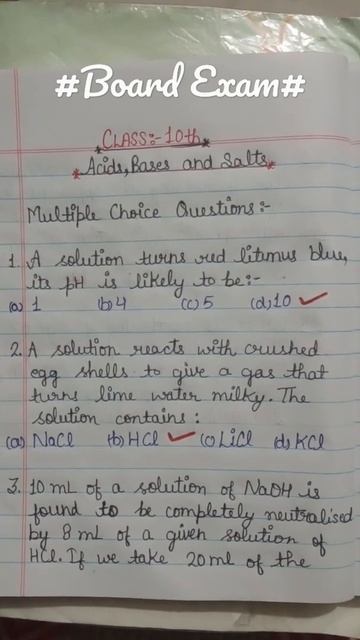 #Board Exam#
CLASS:- 10th
*Acids, Bases and Salts*
Multiple Choice Questions:-
1. A solution turns red litmus blue,
its pH is likely to be:-
(a) 1 (b) 4 (c) 5 (d) 10 ✓
2. A solution reacts with crushed
egg shells to give a gas that
turns lime water milky. The
solution contains:
(a) NaCl (b) HCl ✓ (c) LiCl (d) KCl
3. 10 mL of a solution of NaOH is
found to be completely neutralised
by 8 mL of a given solution of
HCl. If we take 20 ml of the